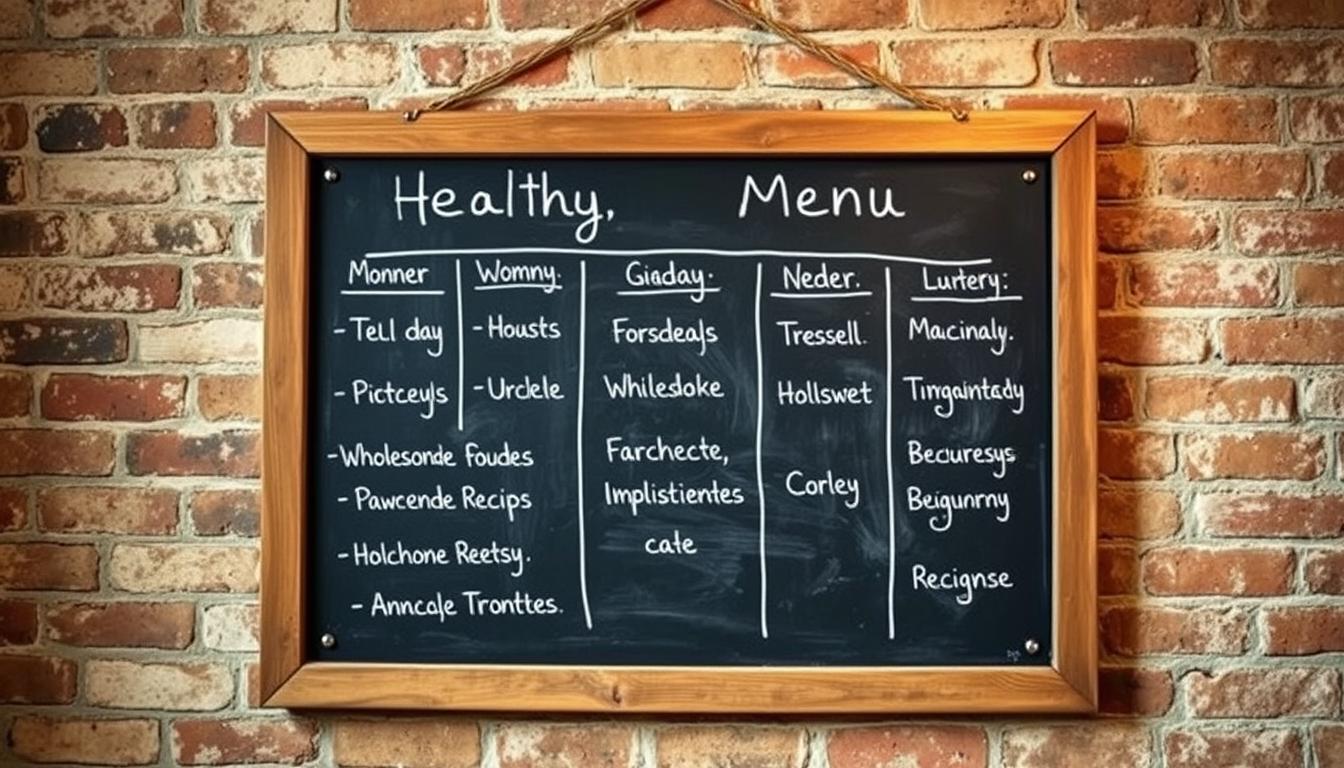 Healthy, Menu
Monner
- Tell day
- Pictceyls
Womny.
- Housts
- Urclele
- Wholesonde Foudes
- Pawcende Recips
- Holchone Reetsy.
- Anncale Tronttes.
Giaday.
Forsdeals
Whilesdoke
Farchecte,
Implistientes
cate
Neder.
Tressell.
Hollswet
Corley
Lurtery:
Macinaly.
Tingaintady
Becuresys
Beigunrny
Recignse